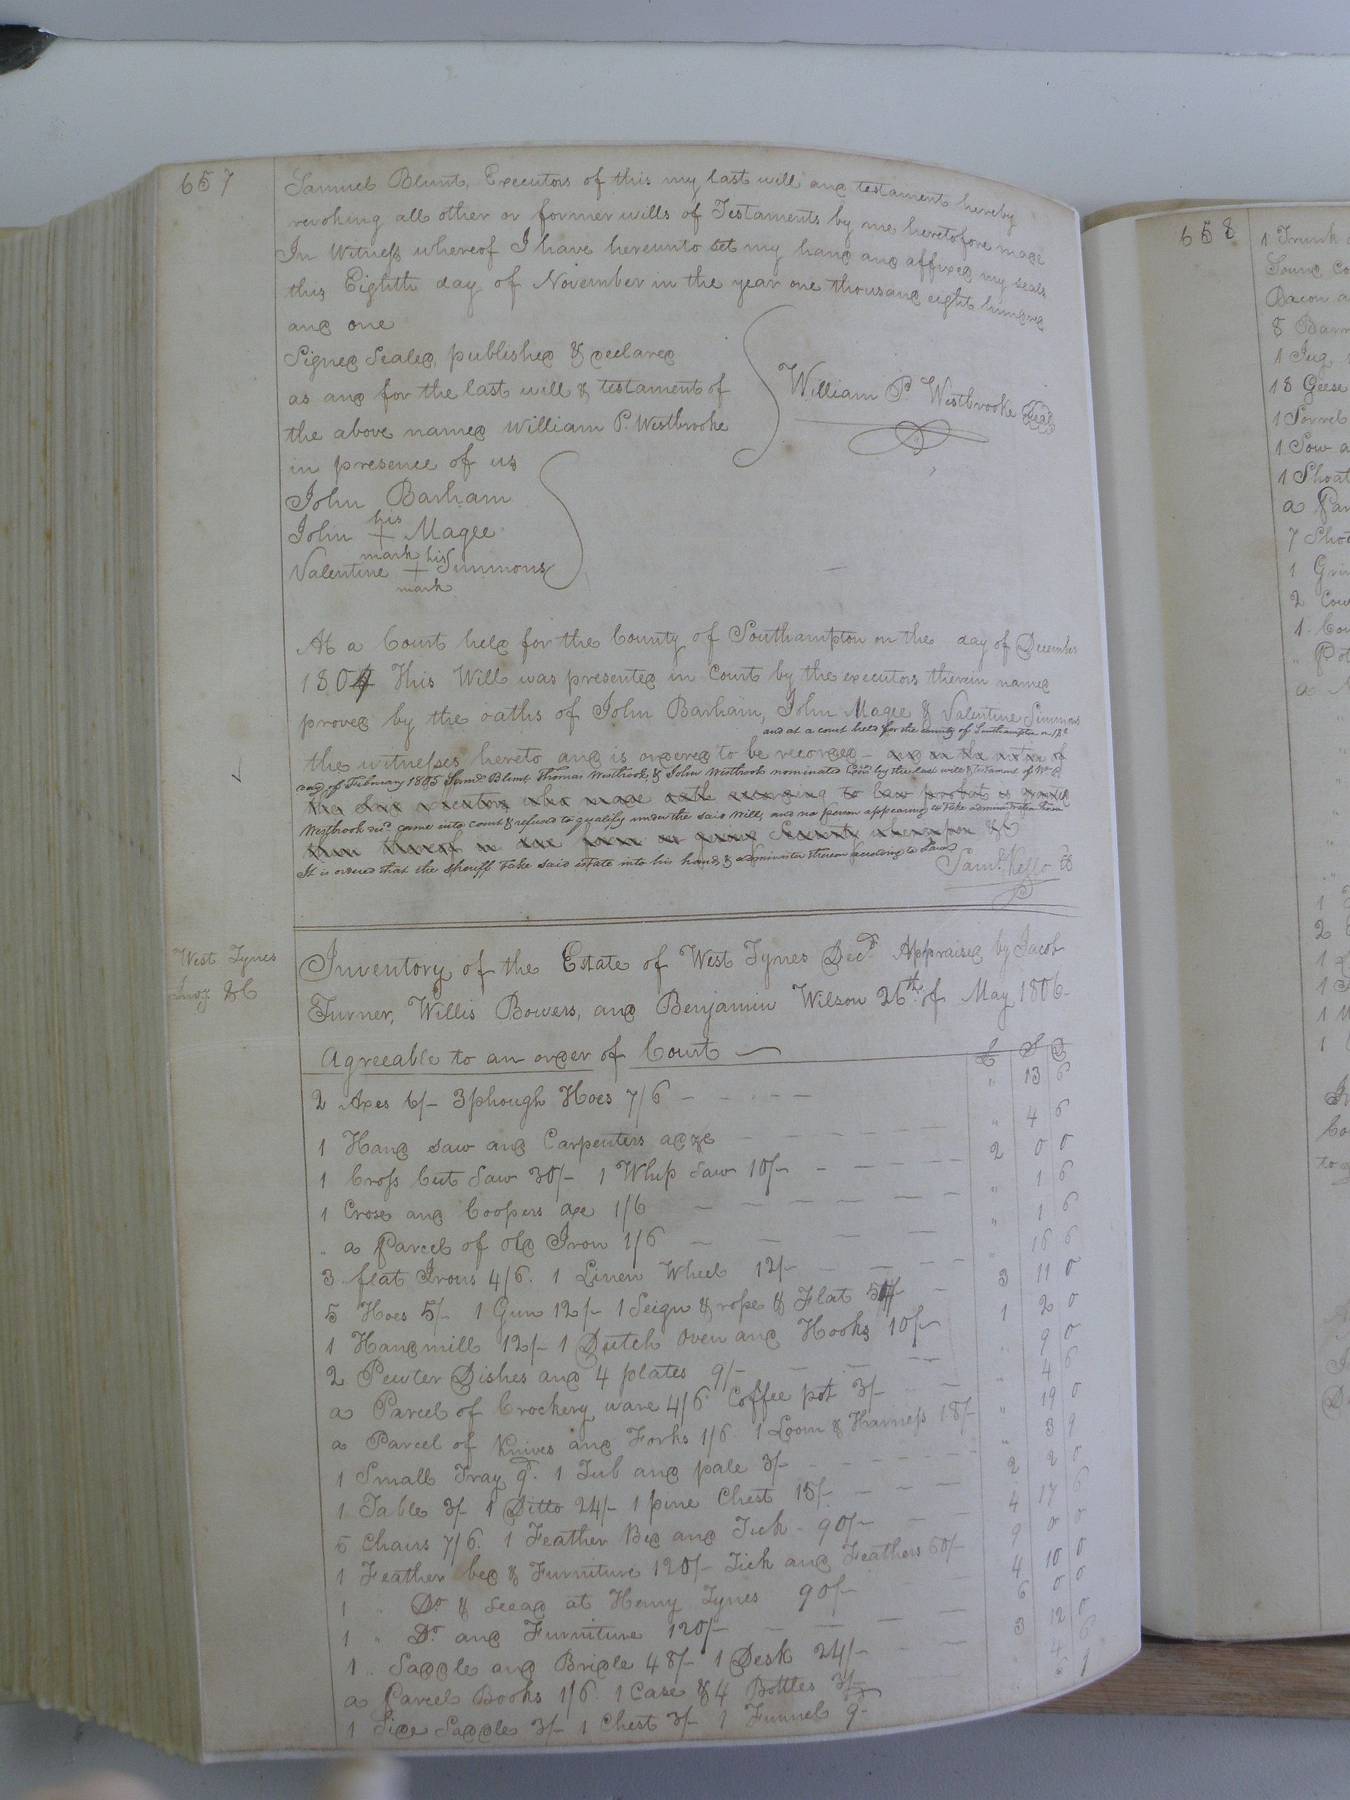 657
Samuel Blunt, Executors of this my last will and testament hereby
revoking all other or former wills of Testaments by me heretofore made
In Witness whereof I have hereunto set my hand and affixed my seals
this Eighth day of November in the year one thousand eight hundred
and one
Signed Sealed, published & declared
as and for the last will & testament of
the above named William P. Westbrooke
in presence of us
William P Westbrooke Seal
John Barham
John his + mark Magee
Valentine his + mark Simmons
At a Court held for the County of Southampton on the day of December
1804 This Will was presented in Court by the executors therein named
proved by the oaths of John Barham, John Magee & Valentine Simmons
and at a court held for the county of Southampton on 18th
the witnesses hereto and is ordered to be recorded –
day of February 1805 Saml Blunt Thomas Westbrook, & John Westbrook nominated by the last will & testament of Wm P
Westbrook decd. came into court & refused to qualify under the said will, and no person appearing to take administration
&c
It is ordered that the sheriff take said estate into his hands & administer thereon according to Law
Saml. Kello
West Tynes
Invy &C
Inventory of the Estate of West Tynes Decd. Appraised by Jacob
Turner, Willis Bowers, and Benjamin Wilson 26th. of May 1806-
Agreeable to an order of Court
£ S D
2 Axes 6/- 3 phough Hoes 7/6 " 13 6
1 Hand saw and Carpenters adze " 4 6
1 Cross Cut Saw 30/- 1 Whip Saw 10/- 2 0 0
1 Croze and Coopers axe 1/6 " 1 6
" a Parcel of old Iron 1/6 " 1 6
3 flat Irons 4/6. 1 Linen Wheel 12/- " 16 6
5 Hoes 5/- 1 Gun 12/- 1 Seign & rope & Flat 54/- 3 11 0
1 Handmill 12/- 1 Dutch Oven and Hooks 10/- 1 2 0
2 Pewter Dishes and 4 plates 9/- " 9 0
a Parcel of Crockery ware 4/6 Coffee pot 3/- " 4 6
a Parcel of Knives and Forks 1/6 1 Loom & Harness 18/- " 19 0
1 Small Tray 9d. 1 Tub and pale 3/- " 3 9
1 Table 3/- 1 Ditto 24/- 1 pine Chest 15/- 2 2 0
5 Chairs 7/6. 1 Feather Bed and Tick - 90/- 4 17 6
1 Feather bed & Furniture 120/- Tick and Feathers 60/- 9 0 0
1 " Do & stead at Henry Tynes 90/- 4 10 0
1 " Do. and Furniture 120/- 6 0 0
1 " Saddle and Bridle 48/- 1 Desk 24/- 3 12 0
a Parcel Books 1/6. 1 Case & 4 Bottles 3/- 4 6
1 Side Saddle 3/- 1 Chest 3/- 1 Funnel 9-
658
1 Trunk
Sound
Bacon
8
1 Jug
18 Geese
1 Sorrel
1 Sow
1
a
7
1
2
1
"
a
1
2
1
1
1
1
to